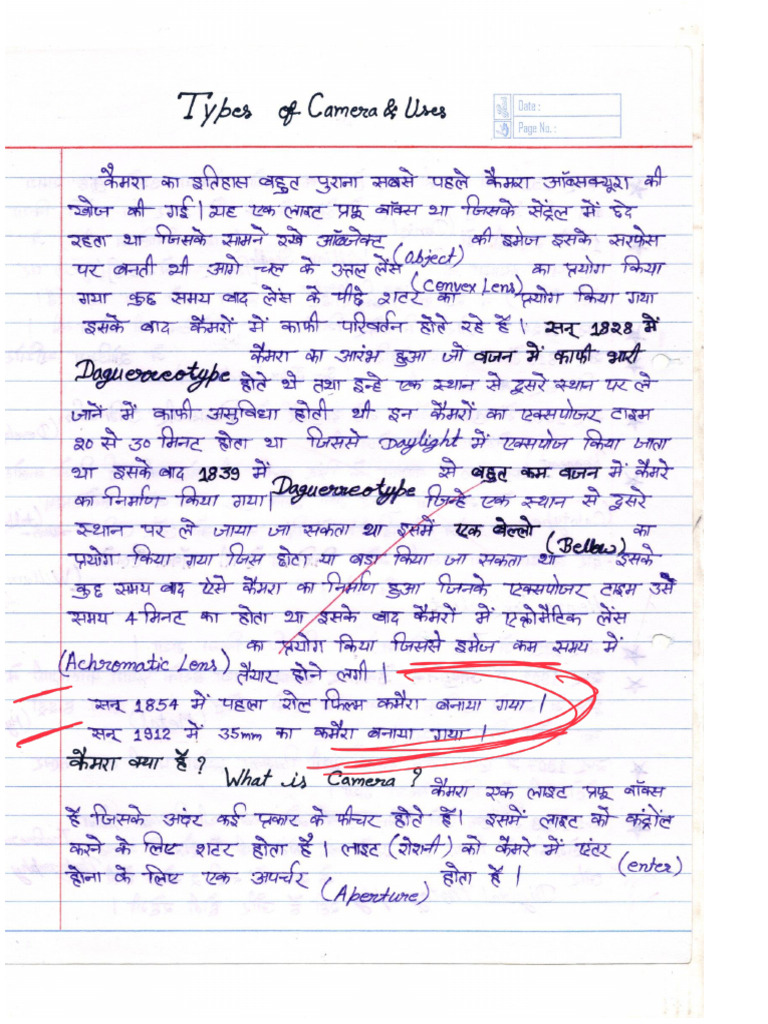 Types of Camera & Uses
Date :
Page No. :
कैमरा का इतिहास बहुत पुराना सबसे पहले कैमरा ऑब्सक्यूरा की
खोज की गई। यह एक लाइट प्रूफ बॉक्स था जिसके सेंट्रेल में छेद
रहता था जिसके सामने रखे ऑब्जेक्ट (Abject) की इमेज इसके सरफेस
पर बनती थी आगे चल के उत्तल लेंस (Convex Lens) का प्रयोग किया
गया कुछ समय बाद लेंस के पीछे शटर का प्रयोग किया गया
इसके बाद कैमरों में काफी परिवर्तन होते रहे हैं। सन् 1828 में
Daguerreotype कैमरा का आरंभ हुआ जो वजन में काफी भारी
होते थे तथा इन्हे एक स्थान से दुसरे स्थान पर ले
जानें में काफी असुविधा होती थी इन कैमरों का एक्सपोजर टाइम
20 से 30 मिनट होता था जिससे Daylight में एक्सपोज किया जाता
था इसके बाद 1839 में Daguerreotype से बहुत कम वजन में कैमरे
का निर्माण किया गया। जिन्हे एक स्थान से दुसरे
स्थान पर ले जाया जा सकता था इसमें एक बेल्लो (Bellow) का
प्रयोग किया गया जिस छोटा या बडा किया जा सकता था इसके
कुछ समय बाद ऐसे कैमरा का निर्माण हुआ जिनके एक्सपोजर टाइम उसे
समय 4 मिनट का होता था इसके बाद कैमरों में एक्रोमैटिक लेंस
(Achromatic Lens) का प्रयोग किया जिससे इमेज कम समय में
तैयार होने लगी।
सन् 1854 में पहला रोल फिल्म कमैरा बनाया गया।
सन् 1912 में 35mm का कमैरा बनाया गया।
कैमरा क्या हैं ?
What is Camera ? कैमरा एक लाइट प्रूफ बॉक्स
हैं जिसके अंदर कई प्रकार के फीचर होते हैं। इसमें लाइट को कंट्रोल
करने के लिए शटर होता है। लाइट (रोशनी) को कैमरे में एंटर (enter)
होना के लिए एक अपर्चर (Aperture) होता हैं।